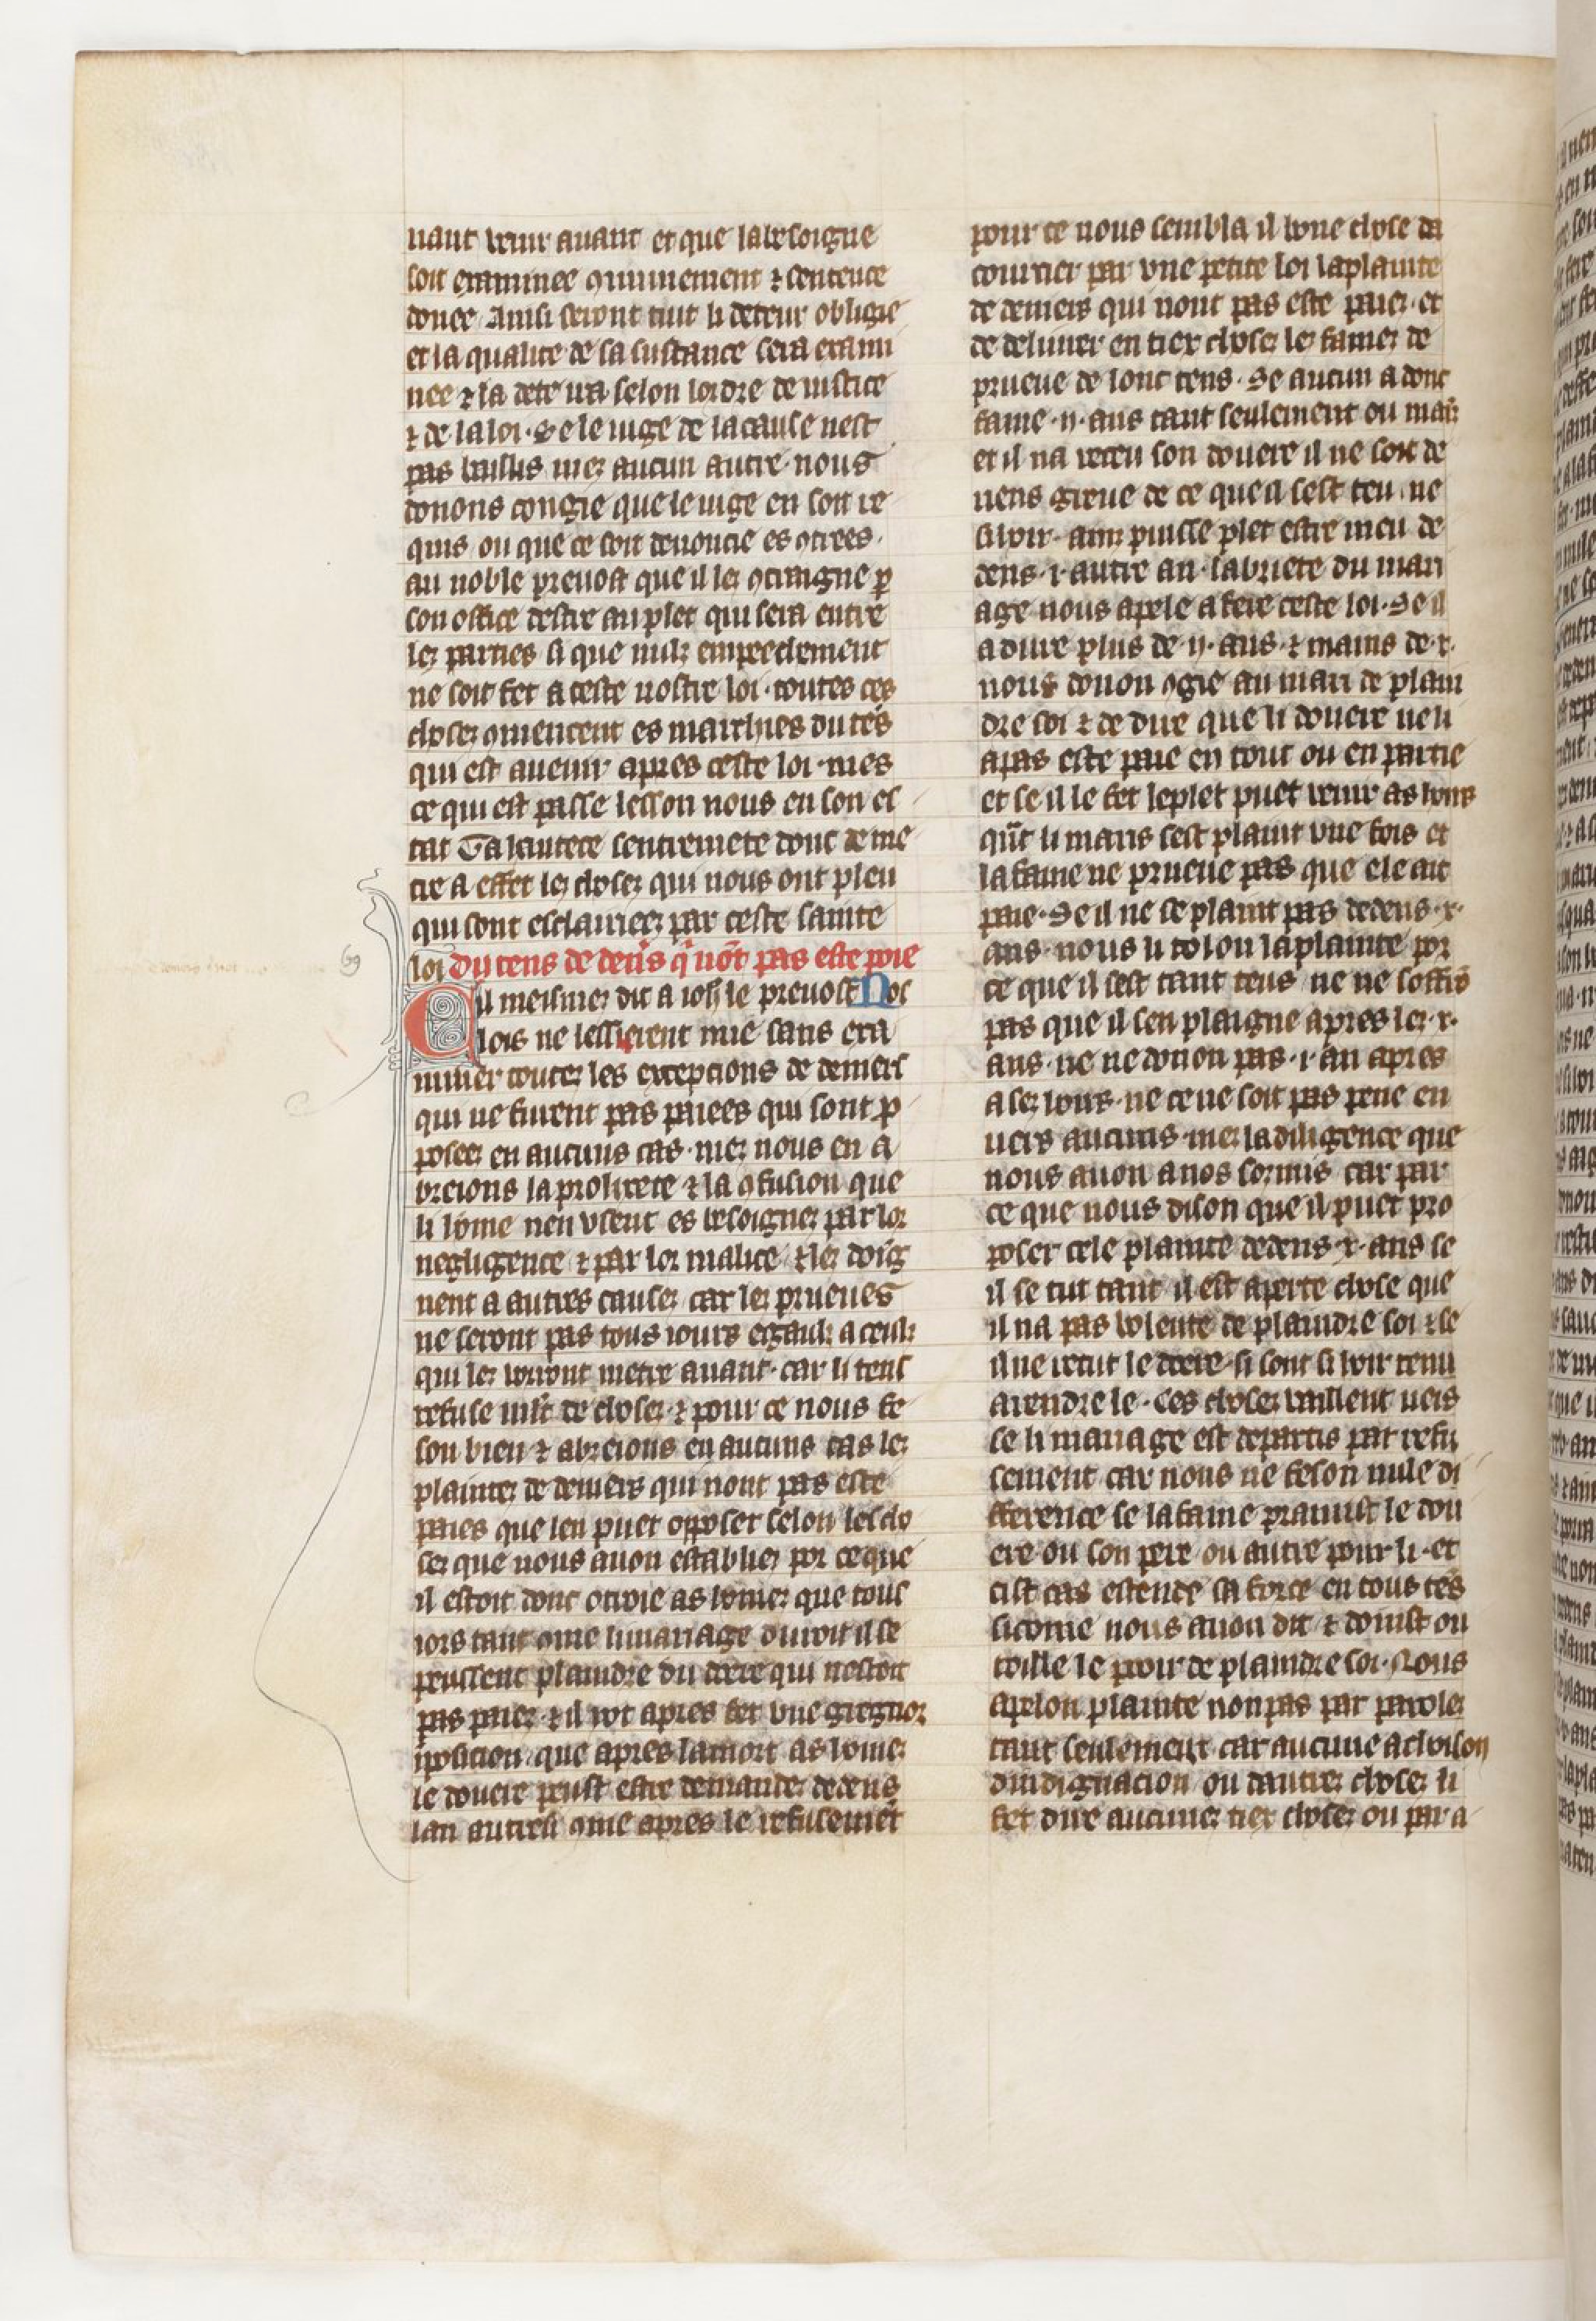 nant venir auant et que la besoigne
soit examinee ɔmunement ⁊ sentence
donee Ainsi seront tuit li deteur obligie
et la qualite de sa sustance sera exami
nee ⁊ la dete ira selon lordre de iustice
⁊ de la loi · Se le iuge de la cause nest
pas baillis mez aucun autre · nous
donons congie que le iuge en soit re
quis ou que ce soit denoncie es ɔtrees ·
au noble preuost que il lez ɔtraigne ꝑ
son office destre au plet qui sera entre
lez parties si que nulz empeechement
ne soit fet a ceste nostre loi · toutes ces
chosez ɔmencent es marthires du tēs
qui est auenir apres ceste loi · mes
ce qui est passe lesson nous en son es
tat Ta hautece sentremete donc de me
tre a effet lez chosez qui nous ont pleu
qui sont esclairieez par ceste sainte
loi du tens de den's q̄ nōt pas este poie
Cil meismez dit a ioh' le preuost Nos
lois ne lessierent mie sans exa
miner toutez les excepcions de deniers
qui ne furent pas paiees qui sont ꝓ
posees en aucuns cas · mez nous en a
breions la prolixete ⁊ la ɔfusion que
li home nen vsent es besoignez par lor
negligence ⁊ par lor malice ⁊ lez doig
nent a autres causez car lez prueues
ne seront pas tous iours egaulz a ceulz
qui lez vorront metre auant · car li tens
refuse ml't de chosez ⁊ pour ce nous fe
son bien ⁊ abreions en aucuns cas lez
plaintez de deniers qui nont pas este
paies que len puet opposer selon les cho
sez que nous auon establiez por ce que
il estoit donc otroie as homez que tous
iors tant ɔme li mariage duroit il se
peussent plaindre du doere qui nestoit
pas paiez ⁊ il rot apres fet vne greignor
īposicion que apres la mort as homez
le douere peust estre demandez dedens
lan autresi ɔme apres le refusemēt
pour ce nous sembla il bone chose da
courcier par vne petite loi la plainte
de deniers qui nont pas este paiez · et
de deliurer en tiex chosez lez famez de
prueue de lonc tens · Se aucun a donc
fame ·ij· ans tant seulement ou mainz
et il na receu son douere il ne soit de
riens greue de ce que il sest teu ne
si hoir · ainz puisse plet estre meu de
dens ·i· autre an · la briete du mari
age nous apele a fere ceste loi · Se il
a dure plus de ·ij· ans ⁊ mains de ·x·
nous donon ɔgie au mari de plain
dre soi ⁊ de dire que li douere ne li
a pas este paie en tout ou en partie
et se il le fet le plet puet venir as hoirs
qn̄t li maris sest plaint vne fois et
la fame ne prueue pas que ele ait
paie · Se il ne se plaint pas dedens ·x·
ans · nous li tolon la plainte por
ce que il sest tant teus ne ne soffrō
pas que il sen plaigne apres lez ·x·
ans · ne ne donon pas ·i· an apres
a sez hoirs · ne ce ne soit pas pene en
uers aucuns · mez la diligence que
nous auon a nos sozmis car par
ce que nous dison que il puet pro
poser cele plainte dedens ·x· ans se
il se tut tant il est aperte chose que
il na pas volente de plaindre soi ⁊ se
il ne recut le doere · si sont si hoir tenu
a rendre le · Ces chosez vaillent neis
se li mariage est departis par refu
sement car nous ne feson nule di
fference se la fame pramist le dou
ere ou son pere ou autre pour li · et
cist cas estende sa force en tous tēs
sicome nous auon dit ⁊ doinst ou
toille le pooir de plaindre soi · Nous
apelon plainte non pas par parolez
tant seulement car aucune achoison
dindignacion ou dautrez chosez li
fet dire aucunez tiex chosez ou par a